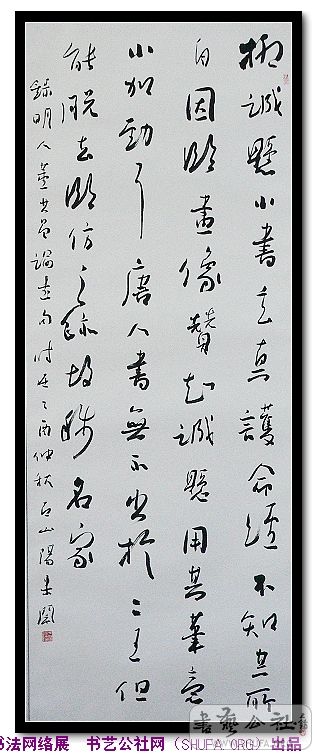 柳誠懸小書玄真護命經不知其所
自因臨畫像贊知誠懸用其筆意
小加勁耳唐人書無不出於二王但
能脫去臨仿之跡故稱名家
錄明人董其昌 時在乙酉仲秋 山陽
書藝公社
书法网络展 书艺公社网（SHUFA.ORG）出品